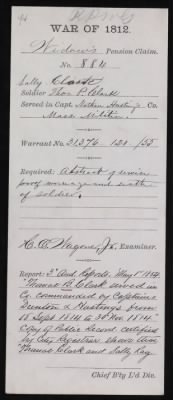 WAR OF 1812.
Widow's Pension Claim.
No. 884
Sally Clark
Soldier Thos. P. Clark
Served in Capt. Nathan Co.
Mass Militia
Warrant No. 21376 120 /55
Required: Abstract of service
proof marriage and death
of soldier.
H. C. Wagoner, Jr. Examiner.
Report: 3d Aud. reports, May 1st
"Thomas Clark served in
Co. commanded by Captains
& Hastings from
15 Sept. 1814 to 30 Nov. 1814."
Copy of Public Record certified
by City Registrar shows that
Thomas Clark and Sally
Chief B'ty L'd Div.